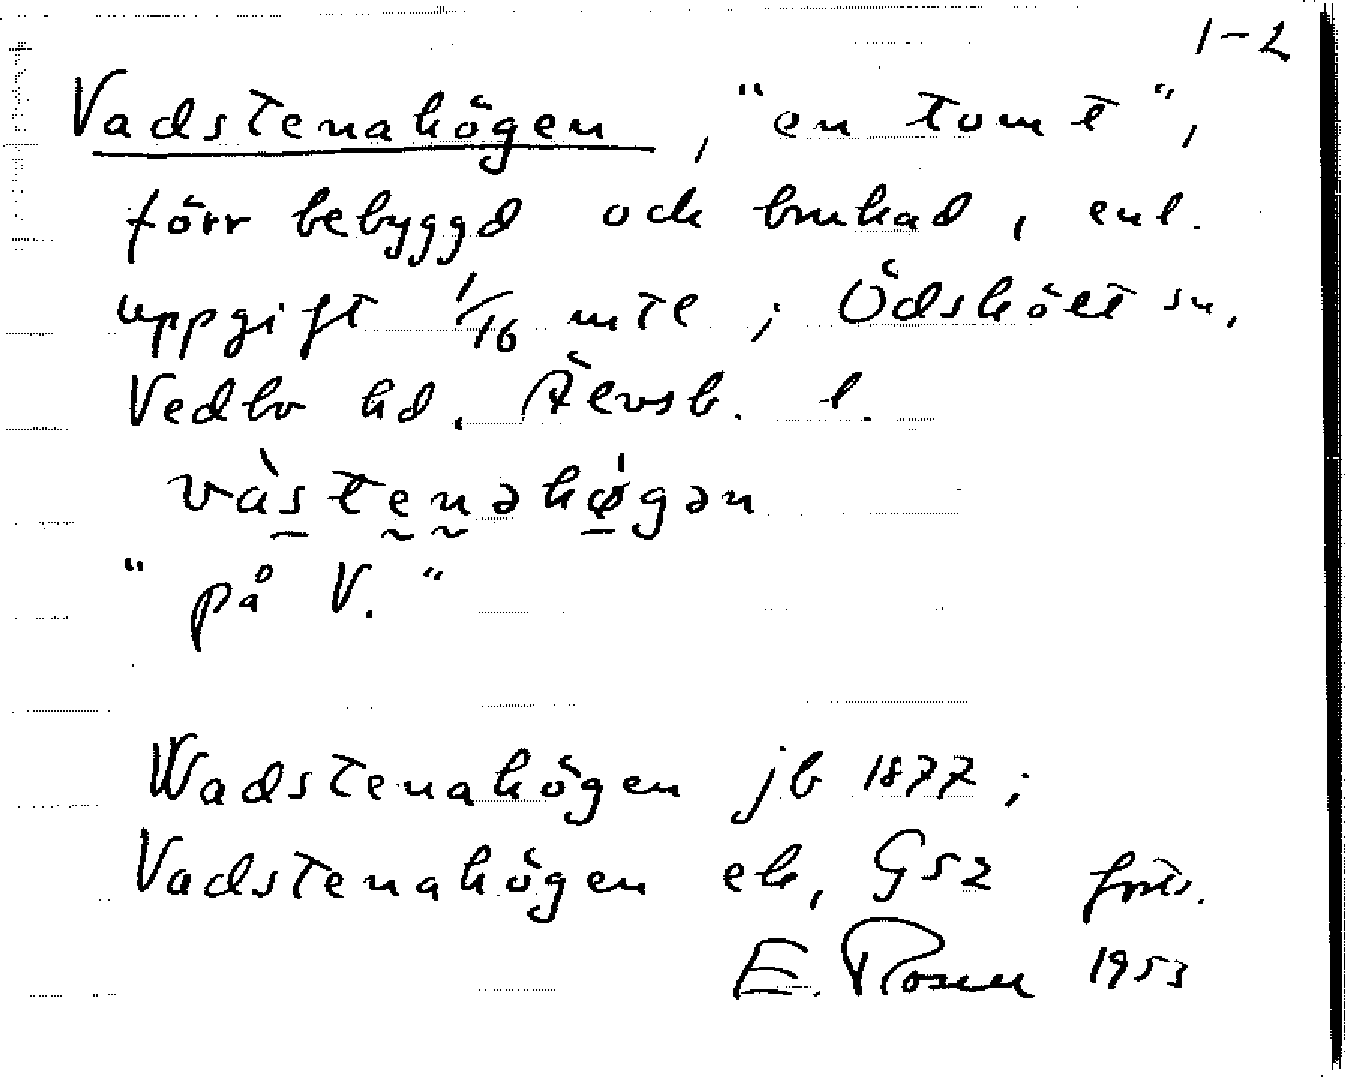 1-2
Vadstenahögen, "en tomt",
förr bebyggd och brukad, enl.
uppgift 1/16 mtl; Ödskölt sn,
Vedbo hd. Älvsb. l.
vàstenəhøgən
"på V."
Wadstenahögen jb 1877;
Vadstenahögen ek, G52 forts.
E. Rosen 1953